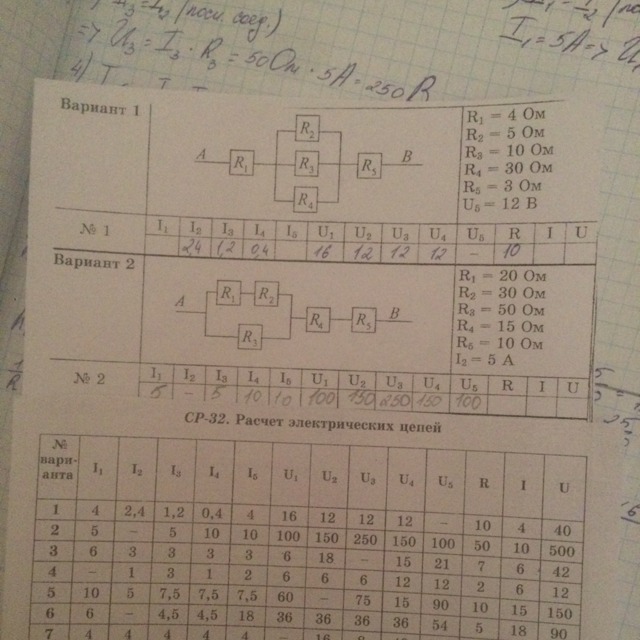 I₃ = I₂ (посл. соед.)
=> U₃ = I₃ · R₃ = 50 Ом · 5А = 250 В
4)
I₁ = I₂
I₁ = 5А => U
Вариант 1
A R₁ R₂ R₃ R₄ R₅ B
R₁ = 4 Ом
R₂ = 5 Ом
R₃ = 10 Ом
R₄ = 30 Ом
R₅ = 3 Ом
U₅ = 12 В
№ 1 I₁ I₂ I₃ I₄ I₅ U₁ U₂ U₃ U₄ U₅ R I U
2,4 1,2 0,4 16 12 12 12 – 10
Вариант 2
A R₁ R₂ R₃ R₄ R₅ B
R₁ = 20 Ом
R₂ = 30 Ом
R₃ = 50 Ом
R₄ = 15 Ом
R₅ = 10 Ом
I₂ = 5 А
№ 2 I₁ I₂ I₃ I₄ I₅ U₁ U₂ U₃ U₄ U₅ R I U
5 – 5 10 10 100 150 250 150 100
СР-32. Расчет электрических цепей
№ вари-анта I₁ I₂ I₃ I₄ I₅ U₁ U₂ U₃ U₄ U₅ R I U
1 4 2,4 1,2 0,4 4 16 12 12 12 – 10 4 40
2 5 – 5 10 10 100 150 250 150 100 50 10 500
3 6 3 3 3 3 6 18 – 15 21 7 6 42
4 – 1 3 1 2 6 6 6 12 12 2 6 12
5 10 5 7,5 7,5 7,5 60 – 75 15 90 10 15 150
6 6 – 4,5 4,5 18 36 36 36 36 54 5 18 90
7 4 4 4 4 4 – 16 8